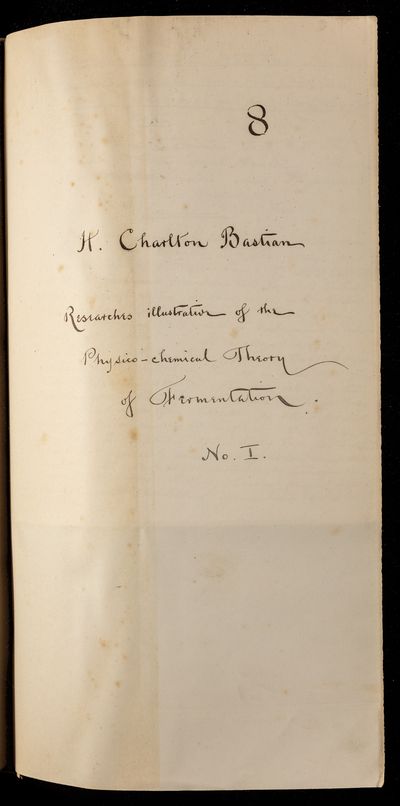 8
H. Charlton Bastian
Researches illustrative of the
Physico-chemical Theory
of Fermentation.
No. I.